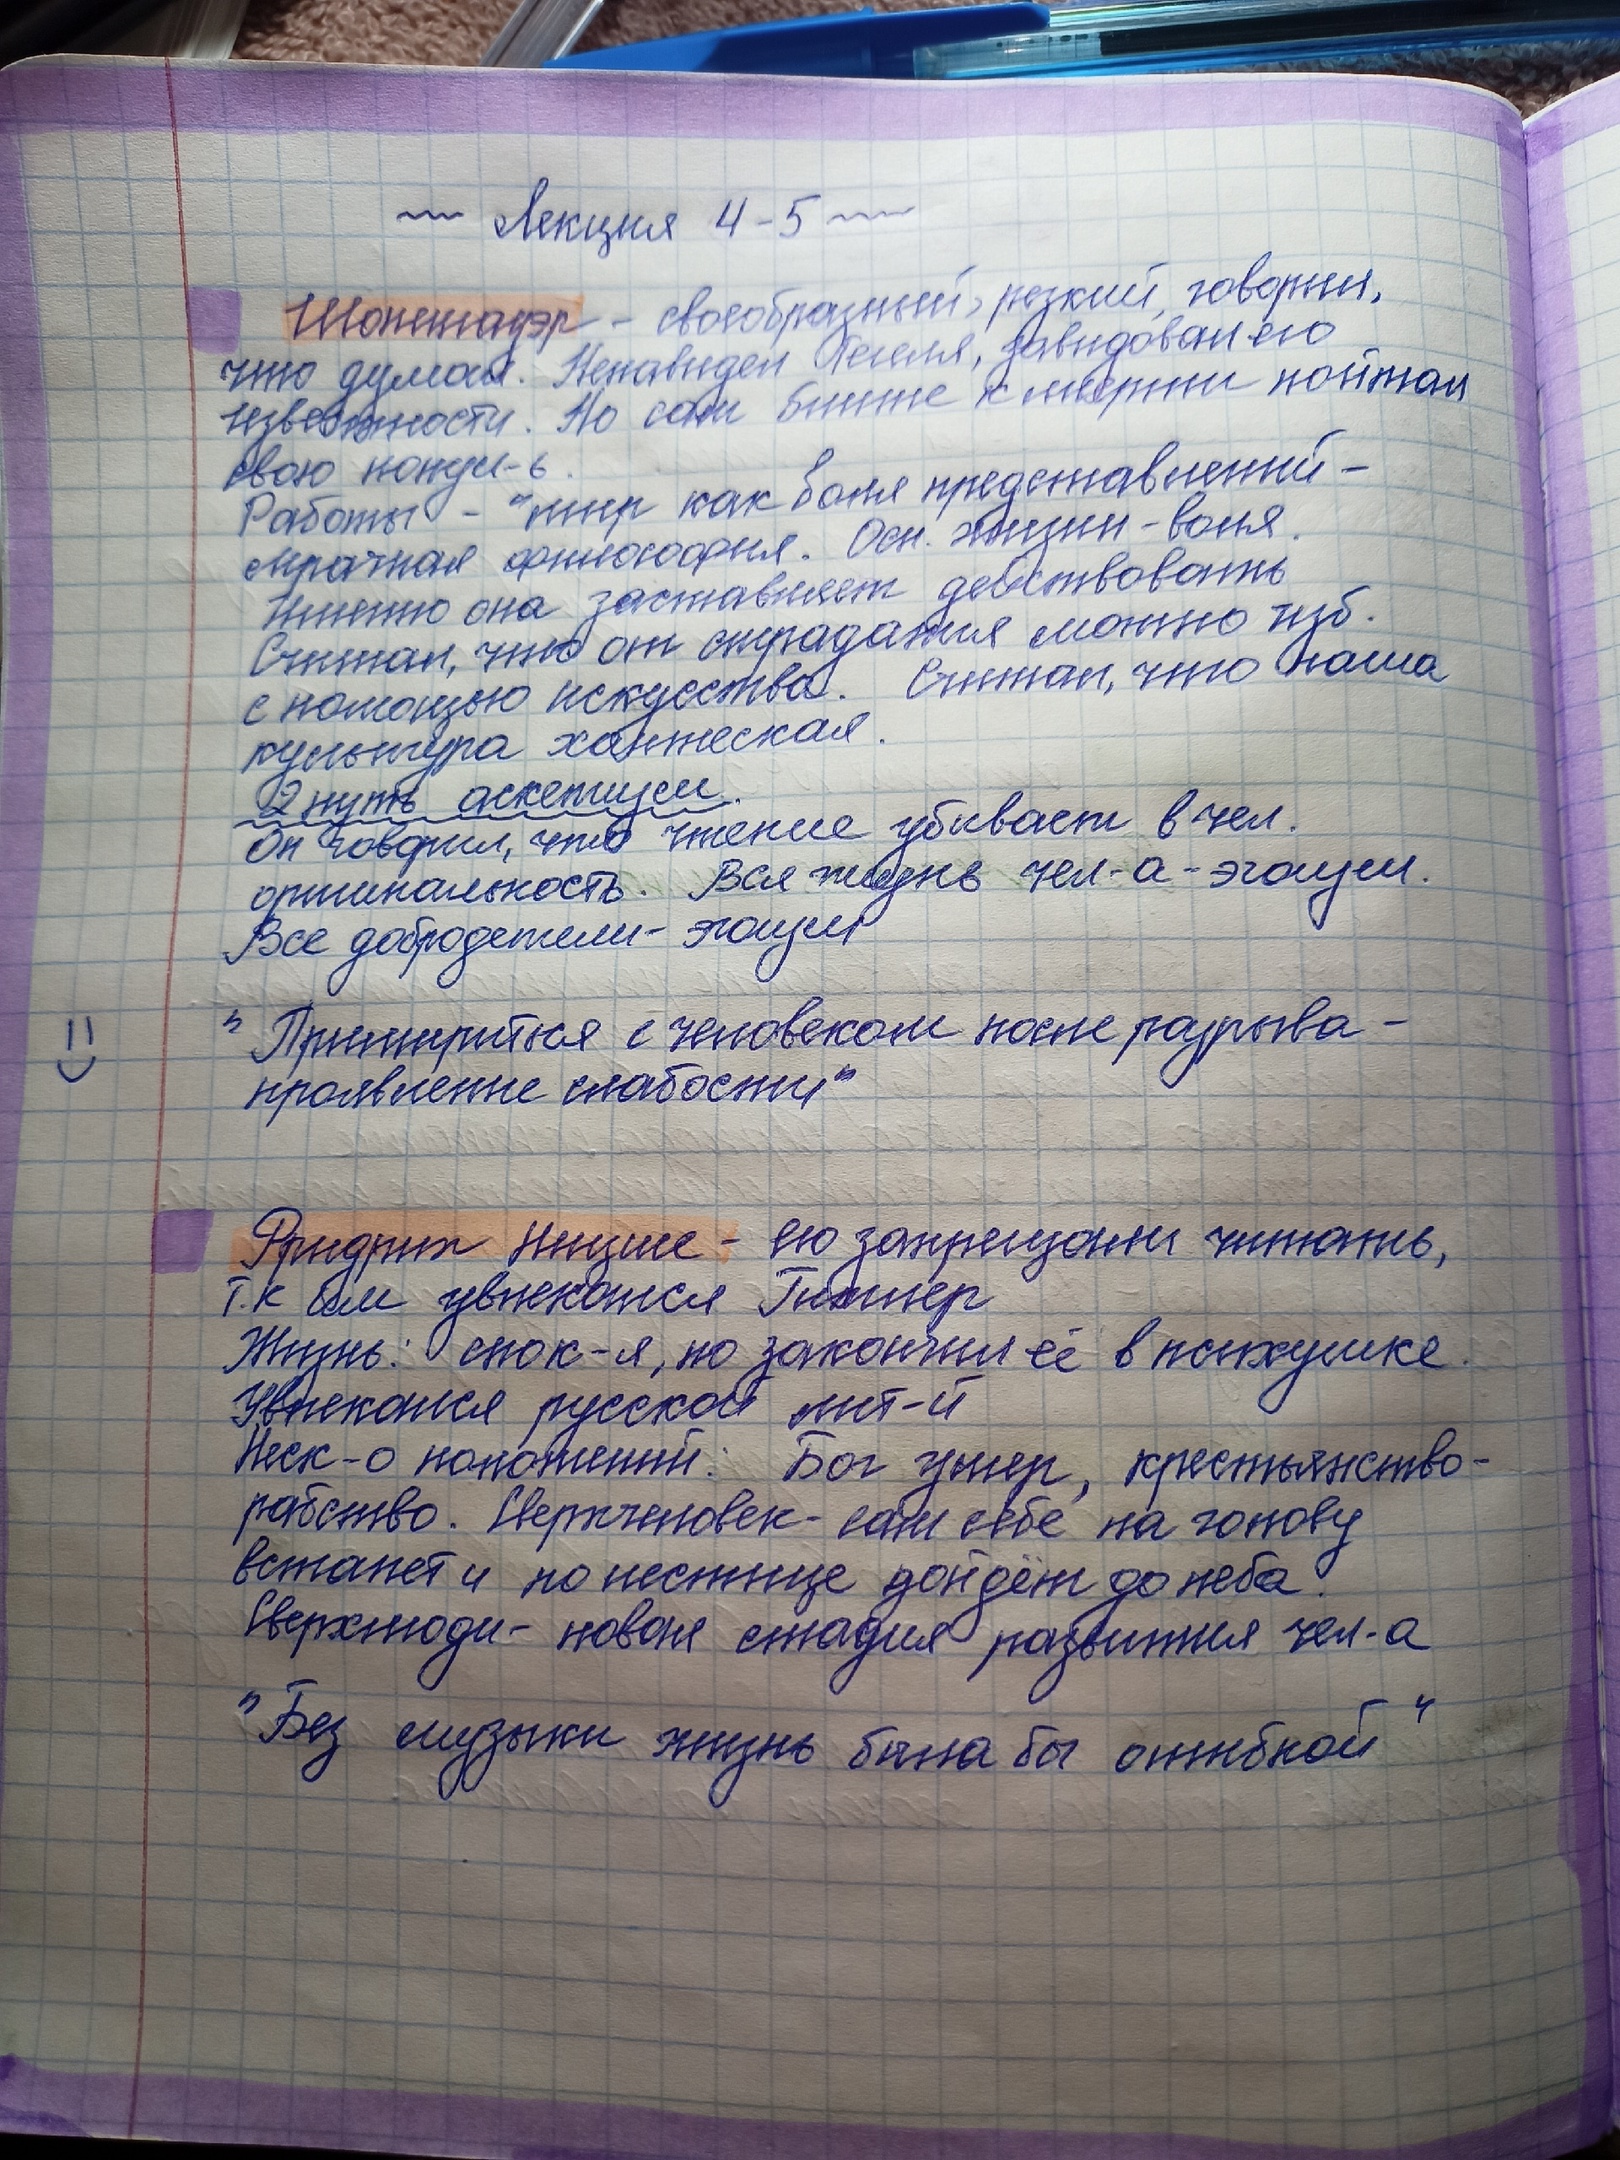 ~ Лекция 4-5 ~
Шопенгауэр - своеобразный, резкий, говорил,
что думал. Ненавидел Гегеля, завидовал его
известности. Но сам ближе к смерти поймал
свою популя-ь.
Работы - "мир как воля представлений -
мрачная философия. Осн. жизни - воля.
Именно она заставляет действовать
Считал, что от страдания можно изб.
с помощью искусства. Считал, что наша
культура ханжеская.
2 путь аскетизм.
Он говорил, что чтение убивает в чел.
оригинальность. Вся жизнь чел-а - эгоизм.
Все добродетели - эгоизм
"Примириться с человеком после разрыва -
проявление слабости"
Фридрих Ницше - его запрещали читать,
т.к им увлекался Гитлер
Жизнь: спок-я, но закончил её в психушке.
Увлекался русской лит-й
Неск-о положений: Бог умер, крестьянство -
рабство. Сверхчеловек - сам себе на голову
встанет и по лестнице дойдёт до неба.
Сверхлюди - новая стадия развития чел-а
"Без музыки жизнь была бы ошибкой"